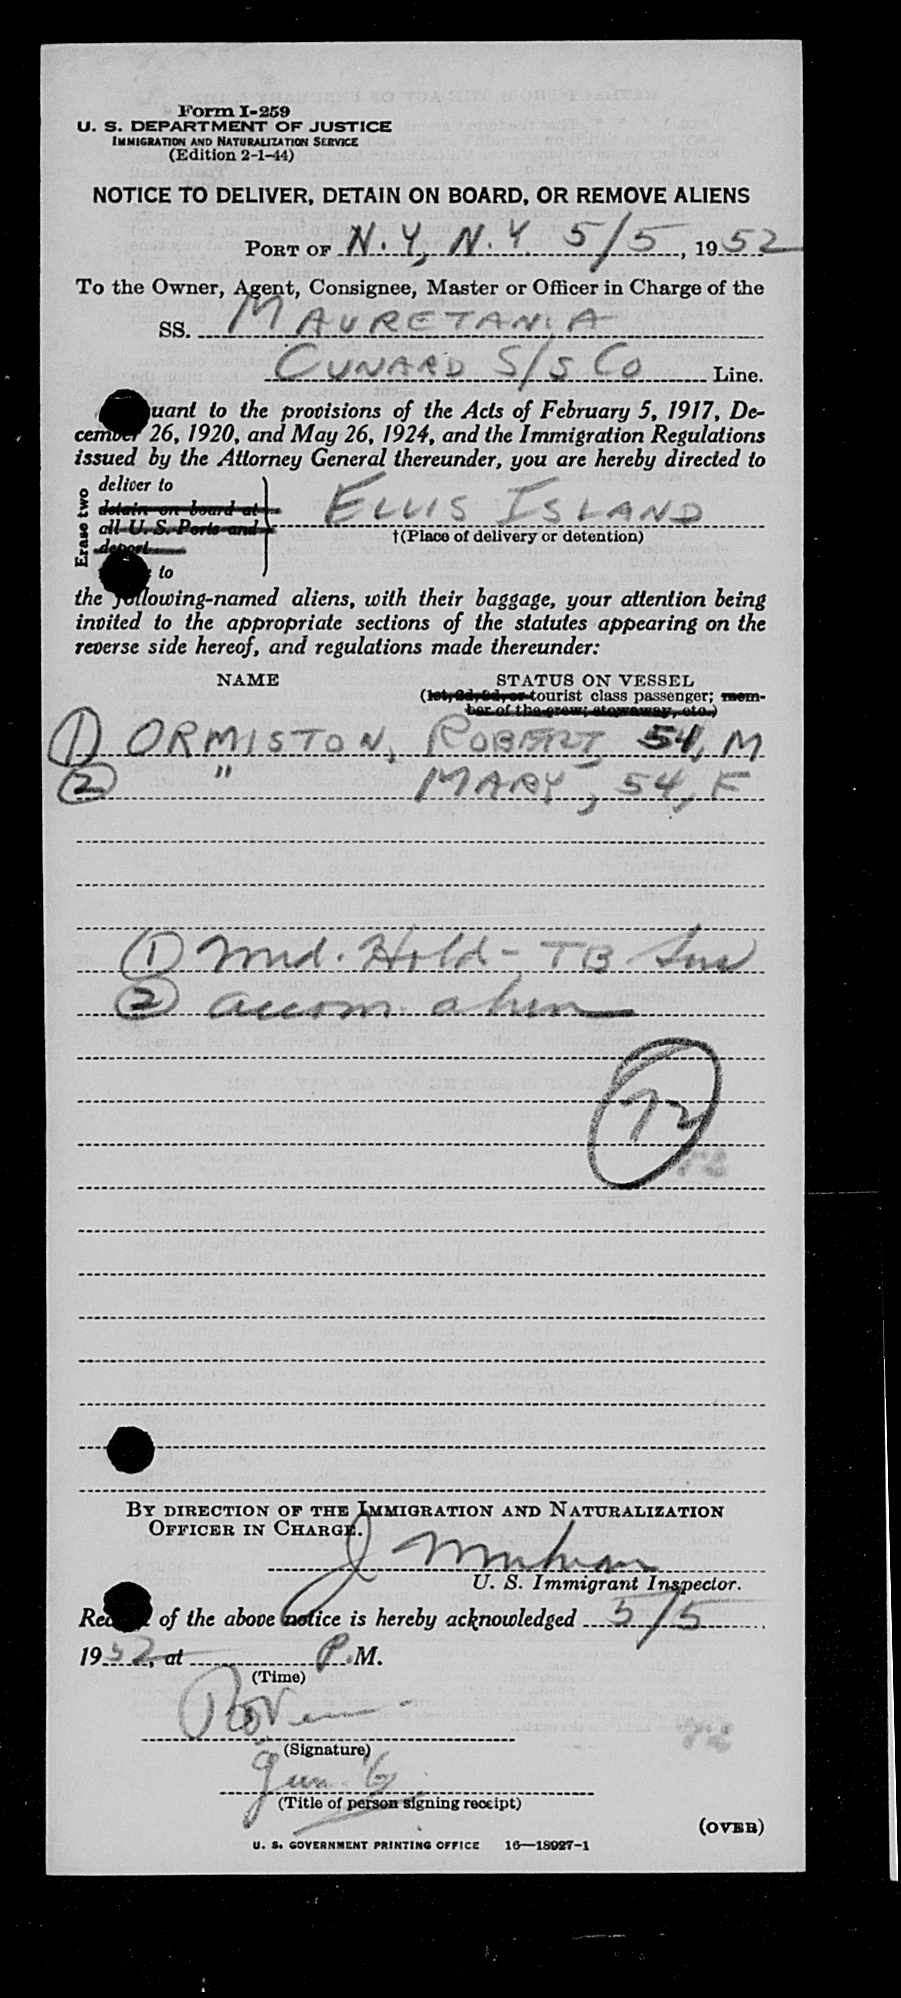 Form I-259
U. S. DEPARTMENT OF JUSTICE
IMMIGRATION AND NATURALIZATION SERVICE
(Edition 2-1-44)
NOTICE TO DELIVER, DETAIN ON BOARD, OR REMOVE ALIENS
PORT OF N.Y, N.Y 5/5, 1952
To the Owner, Agent, Consignee, Master or Officer in Charge of the
SS. MAURETANIA
CUNARD S/S CO Line.
uant to the provisions of the Acts of February 5, 1917, De-
cember 26, 1920, and May 26, 1924, and the Immigration Regulations
issued by the Attorney General thereunder, you are hereby directed to
Erase two
deliver to
detain on board at
all U. S. Ports and
deport
to
ELLIS ISLAND
†(Place of delivery or detention)
the following-named aliens, with their baggage, your attention being
invited to the appropriate sections of the statutes appearing on the
reverse side hereof, and regulations made thereunder:
NAME STATUS ON VESSEL
(1st, 2d, 3d, or tourist class passenger; mem-
ber of the crew; stowaway, etc.)
1 ORMISTON, ROBERT, 54, M
2 " MARY, 54, F
1 Med. Hold - TB
2 accom. alien
72
BY DIRECTION OF THE IMMIGRATION AND NATURALIZATION
OFFICER IN CHARGE.
J
U. S. Immigrant Inspector.
Rec of the above notice is hereby acknowledged 5/5
1952, at P.M.
(Time)
(Signature)
(Title of person signing receipt)
(OVER)
U. S. GOVERNMENT PRINTING OFFICE 16—18927-1